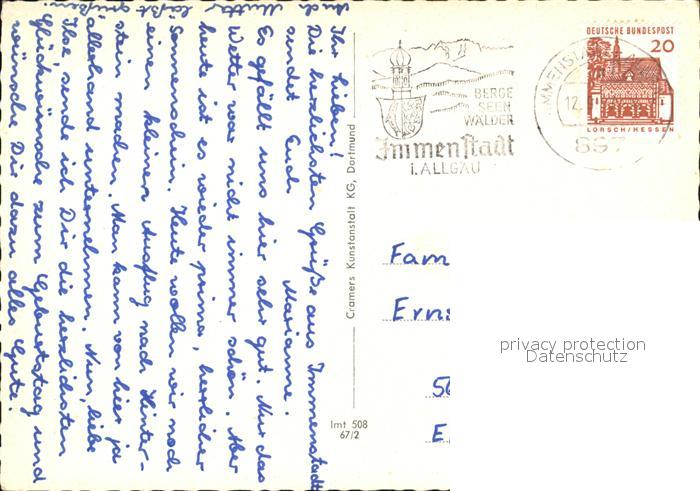 Ihr Lieben!
Die herzlichsten Grüße aus Immenstadt
sendet Euch Marianne.
Es gefällt uns hier sehr gut. Nur das
Wetter war nicht immer schön. Aber
heute ist es wieder prima, herrlicher
Sonnenschein. Heute wollen wir noch
einen kleinen Ausflug nach Hinter-
stein machen. Man kann von hier ja
allerhand unternehmen. Nun, liebe
Ilse, sende ich Dir die herzlichsten
Glückwünsche zum Geburtstag und
wünsche Dir dazu alles Gute.
Mutter
Cramers Kunstanstalt KG, Dortmund
Imt 508
67/2
BERGE
SEEN
WÄLDER
Immenstadt
i. ALLGÄU
IMMENSTA
12.
897
DEUTSCHE BUNDESPOST
20
LORSCH/HESSEN
Fam
Erns
privacy protection
Datenschutz